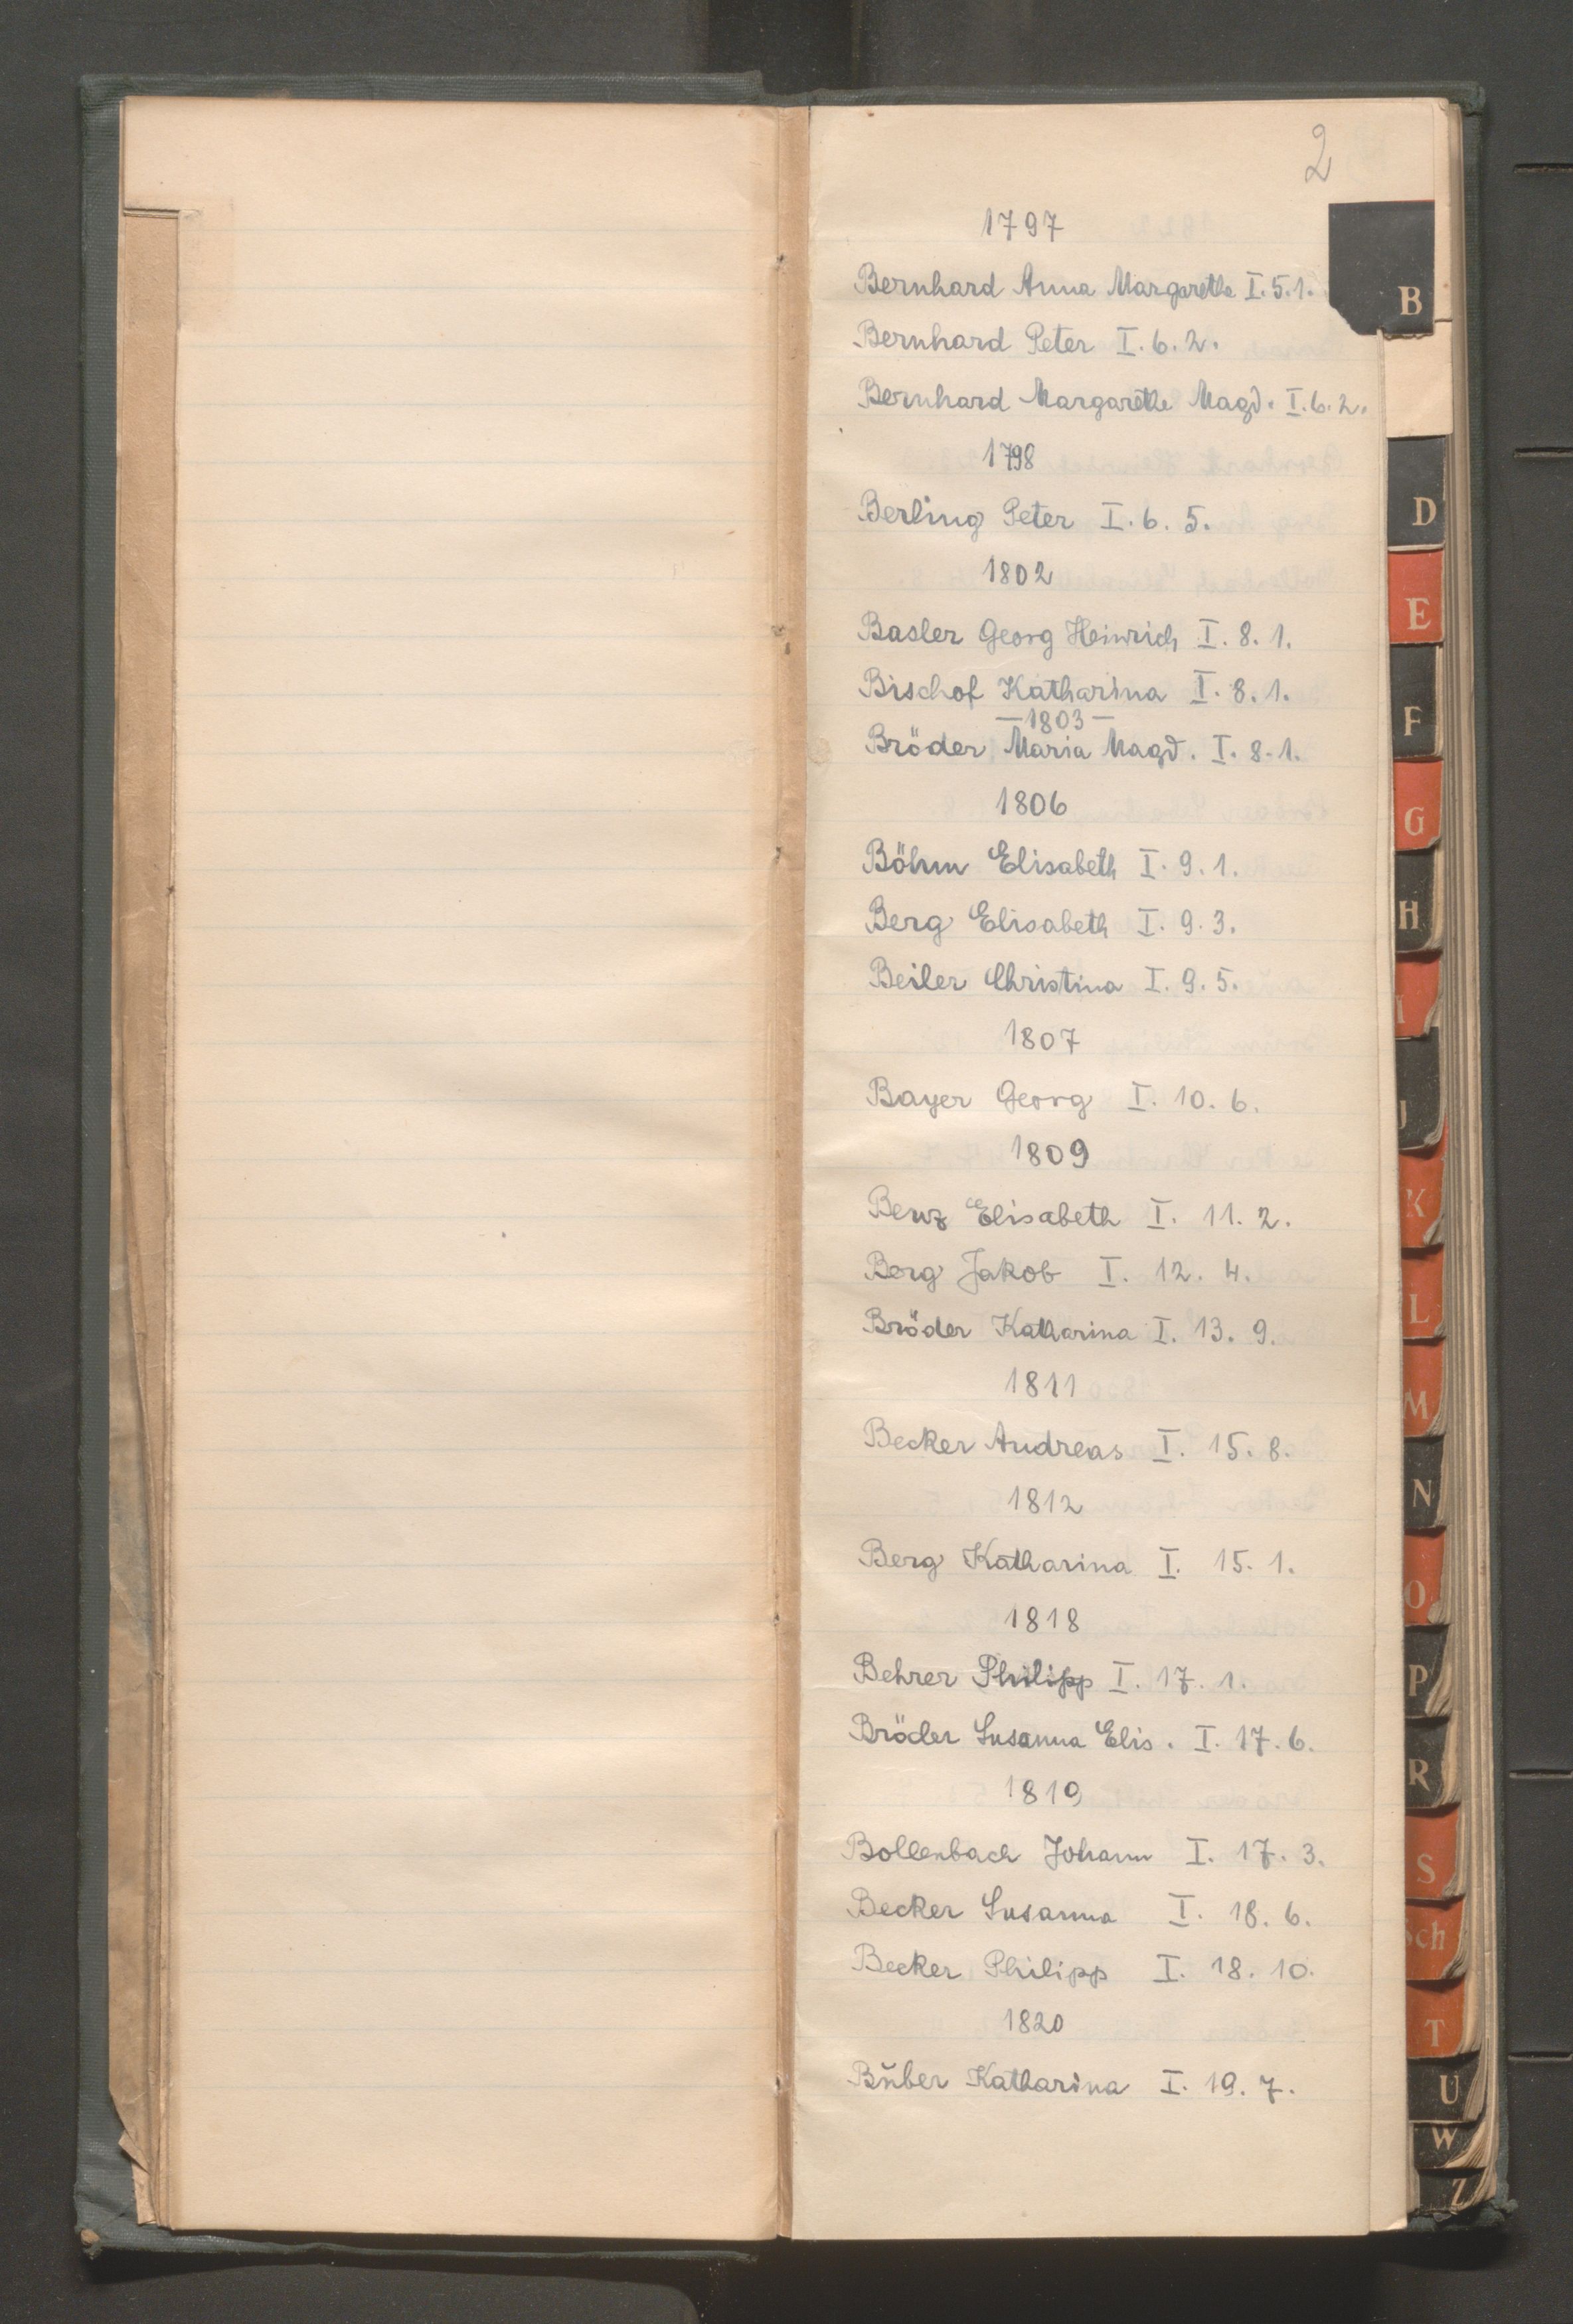 2
1797
Bernhard Anna Margarethe I. 5. 1.
Bernhard Peter I. 6. 2.
Bernhard Margarethe Magd. I. 6. 2.
1798
Berling Peter I. 6. 5.
1802
Basler Georg Heinrich I. 8. 1.
Bischof Katharina I. 8. 1.
— 1803 —
Bröder Maria Magd. I. 8. 1.
1806
Böhm Elisabeth I. 9. 1.
Berg Elisabeth I. 9. 3.
Beiler Christina I. 9. 5.
1807
Bayer Georg I. 10. 6.
1809
Benz Elisabeth I. 11. 2.
Berg Jakob I. 12. 4.
Bröder Katharina I. 13. 9.
1811
Becker Andreas I. 15. 8.
1812
Berg Katharina I. 15. 1.
1818
Behrer Philipp I. 17. 1.
Bröder Susanna Elis. I. 17. 6.
1819
Bollenbach Johann I. 17. 3.
Becker Susanna I. 18. 6.
Becker Philipp I. 18. 10.
1820
Bŭber Katharina I. 19. 7.
B
D
E
F
G
H
I
J
K
L
M
N
O
P
R
S
Sch
T
U
W
Z